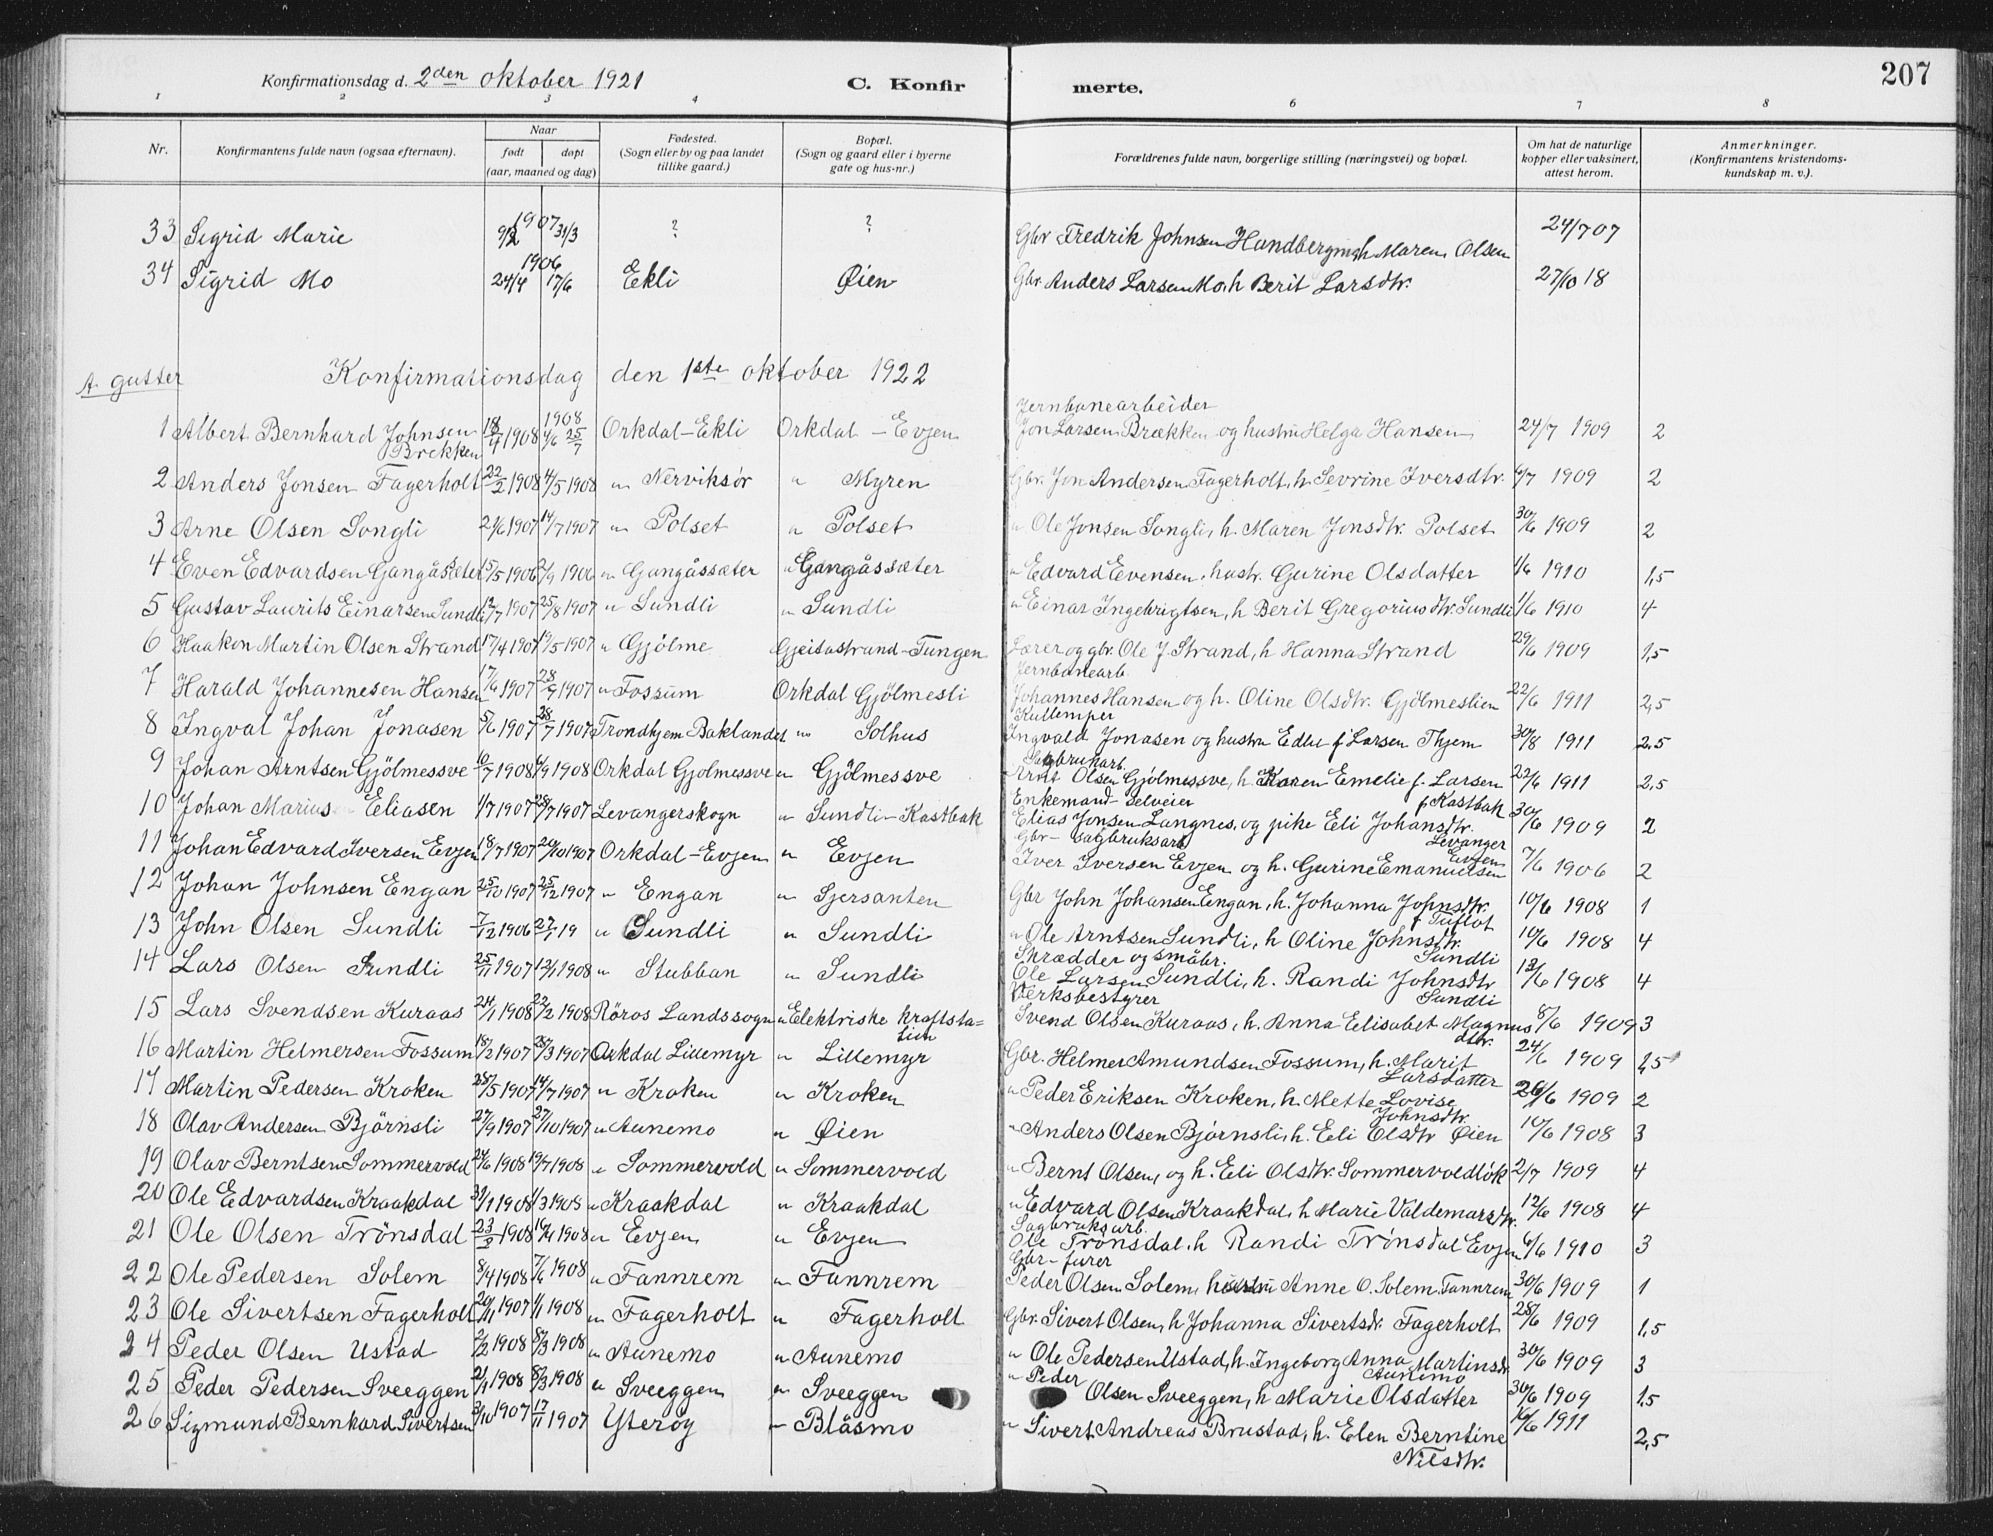 207
Konfirmationsdag d. 2den oktober 1921 C. Konfirmerte.
1 2 3 4 6 7 8
Nr. Konfirmantens fulde navn (ogsaa efternavn). Naar født døpt (aar, maaned og dag) Fødested. (Sogn eller by og paa landet tillike gaard.) Bopæl. (Sogn og gaard eller i byerne gate og hus-nr.) Forældrenes fulde navn, borgerlige stilling (næringsvei) og bopæl. Om hat de naturlige kopper eller vaksinert, attest herom. Anmerkninger. (Konfirmantens kristendomskundskap m. v.).
33 Sigrid Marie 9/2 1907 31/3 ? ? Gbr Fredrik Johnsen Handberg h Maren Olsen 24/7 07
34 Sigrid Mo 24/4 1906 17/6 Ekli Øien Gbr. Anders Larsen Mo, h Berit Larsdtr. 27/10 18
A gutter Konfirmationsdag den 1ste oktober 1922
1 Albert Bernhard Johnsen Brekken 18/4 1908 1908 Orkdal-Ekli Orkdal-Evjen Jernbanearbeider Jon Larsen Brækken og hustru Helga Hansen 24/7 1909 2
2 Anders Jonsen Fagerholt 22/2 1908 4/5 1908 " Nerviksör " Myren Gbr. Jon Andersen Fagerholt, h. Sevrine Iversdtr. 6/7 1909 2
3 Arne Olsen Songli 2/6 1907 14/7 1907 " Polset " Polset " Ole Jonsen Songli, h. Maren Jonsdtr. Polset 30/6 1909 2
4 Even Edvardsen Gangåsæter 15/5 1906 2/9 1906 " Gangåssæter " Gangåssæter " Edvard Evensen, hustr. Gurine Olsdatter 1/6 1910 1,5
5 Gustav Laurits Einarsen Sundli 12/7 1907 25/8 1907 " Sundli " Sundli " Einar Ingebrigtsen, h Berit Gregoriusdtr. Sundli 1/6 1910 4
6 Haakon Martin Olsen Strand 17/4 1907 19/5 1907 " Gjölme Gjeitastrand-Tungen Lærer og gbr. Ole J. Strand, h Hanna Strand 29/6 1909 1,5
7 Harald Johannesen Hansen 1907 28/9 1907 " Fossum Orkdal Gjölmesli Jernbanearb. Johannes Hansen og h. Oline Olsdtr. Gjölmeslien 22/6 1911 2,5
8 Ingval Johan Jonasen 5/6 1907 28/7 1907 Trondhjem Baklandet " Solhus Kullemper Ingvald Jonasen og hustru Edle f. Larsen Thjem 30/8 1911 2,5
9 Johan Arntsen Gjölmessve 10/7 1908 6/9 1908 Orkdal Gjölmessve " Gjölmessve Sagbrukarb. Arnt Olsen Gjölmessve, h. Karen Emelie f. Larsen 22/6 1911 2,5
10 Johan Marius Eliasen 1/7 1907 28/7 1907 Levangerskogn " Sundli-Kastbak Enkemand-selveier Elias Jonsen Langnes, og pike Eli Johansdtr. f Kastbak Levanger 30/6 1909 2
11 Johan Edvard Iversen Evjen 18/7 1907 20/10 1907 Orkdal-Evjen " Evjen Gbr-sagbruksarb Iver Iversen Evjen og h. Gurine Emanuelsen Evjen 7/6 1906 2
12 Johan Johnsen Engan 25/10 1907 25/12 1907 " Engan " Sjersanten Gbr John Johansen Engan, h. Johanna Johnsdtr. f Tuflot 10/6 1908 1
13 John Olsen Sundli 7/12 1906 27/1 19 " Sundli " Sundli " Ole Arntsen Sundli, h Oline Johnsdtr. Sundli 10/6 1908 4
14 Lars Olsen Sundli 25/11 1907 12/1 1908 " Stubban " Sundli Skrædder og småbr. Ole Larsen Sundli, h. Randi Johnsdtr Sundli 12/6 1908 4
15 Lars Svendsen Kuraas 24/1 1908 23/2 1908 Röros Landssogn " Elektriske kraftsta=tion Verksbestyrer Svend Olsen Kuraas, h. Anna Elisabet Magnusdtr. 8/6 1909 3
16 Martin Helmersen Fossum 18/2 1907 28/3 1907 Orkdal Lillemyr " Lillemyr Gbr. Helmer Amundsen Fossum, h. Marit Larsdatter 24/6 1909 1,5
17 Martin Pedersen Kroken 28/5 1907 14/7 1907 " Kroken " Kroken " Peder Eriksen Kroken, h. Mette Lovise Johnsdtr. 26/6 1909 2
18 Olav Andersen Björnsli 27/9 1907 27/10 1907 " Aunemo " Øien " Anders Olsen Björnsli, h. Eli Olsdtr Øien 10/6 1908 3
19 Olav Berntsen Sommervold 24/6 1908 19/7 1908 " Sommervold " Sommervold " Bernt Olsen, og h. Eli Olsdtr. Sommervoldlök 2/7 1909 4
20 Ole Edvardsen Kraakdal 31/1 1908 1/3 1908 " Kraakdal " Kraakdal " Edvard Olsen Kraakdal, h Marie Valdemarsdtr. 12/6 1908 4
21 Ole Olsen Trönsdal 23/2 1908 16/4 1908 " Evjen " Evjen Sagbruksarb. Ole Trönsdal, h Randi Trönsdal Evjen 6/6 1910 3
22 Ole Pedersen Solem 8/4 1908 7/6 1908 " Fannrem " Fannrem Gbr-furer Peder Olsen Solem, hustru Anne O. Solem. Fannrem 30/6 1909 1
23 Ole Sivertsen Fagerholt 20/11 1907 1/1 1908 " Fagerholt " Fagerholt Gbr. Sivert Olsen, h Johanna Sivertsdr. Fagerholt 28/6 1909 1,5
24 Peder Olsen Ustad 2/2 1908 8/3 1908 " Aunemo " Aunemo " Ole Pedersen Ustad, h. Ingeborg Anna Martinsdr. Aunemo 30/6 1909 3
25 Peder Pedersen Sveeggen 2/1 1908 8/3 1908 " Sveeggen " Sveeggen " Peder Olsen Sveeggen, h Marie Olsdatter 30/6 1909 1,5
26 Sigmund Bernhard Sivertsen 3/10 1907 17/11 1907 Yteröy " Blåsmo " Sivert Andreas Brustad, h. Elen Berntine Nilsdtr. 16/6 1911 2,5